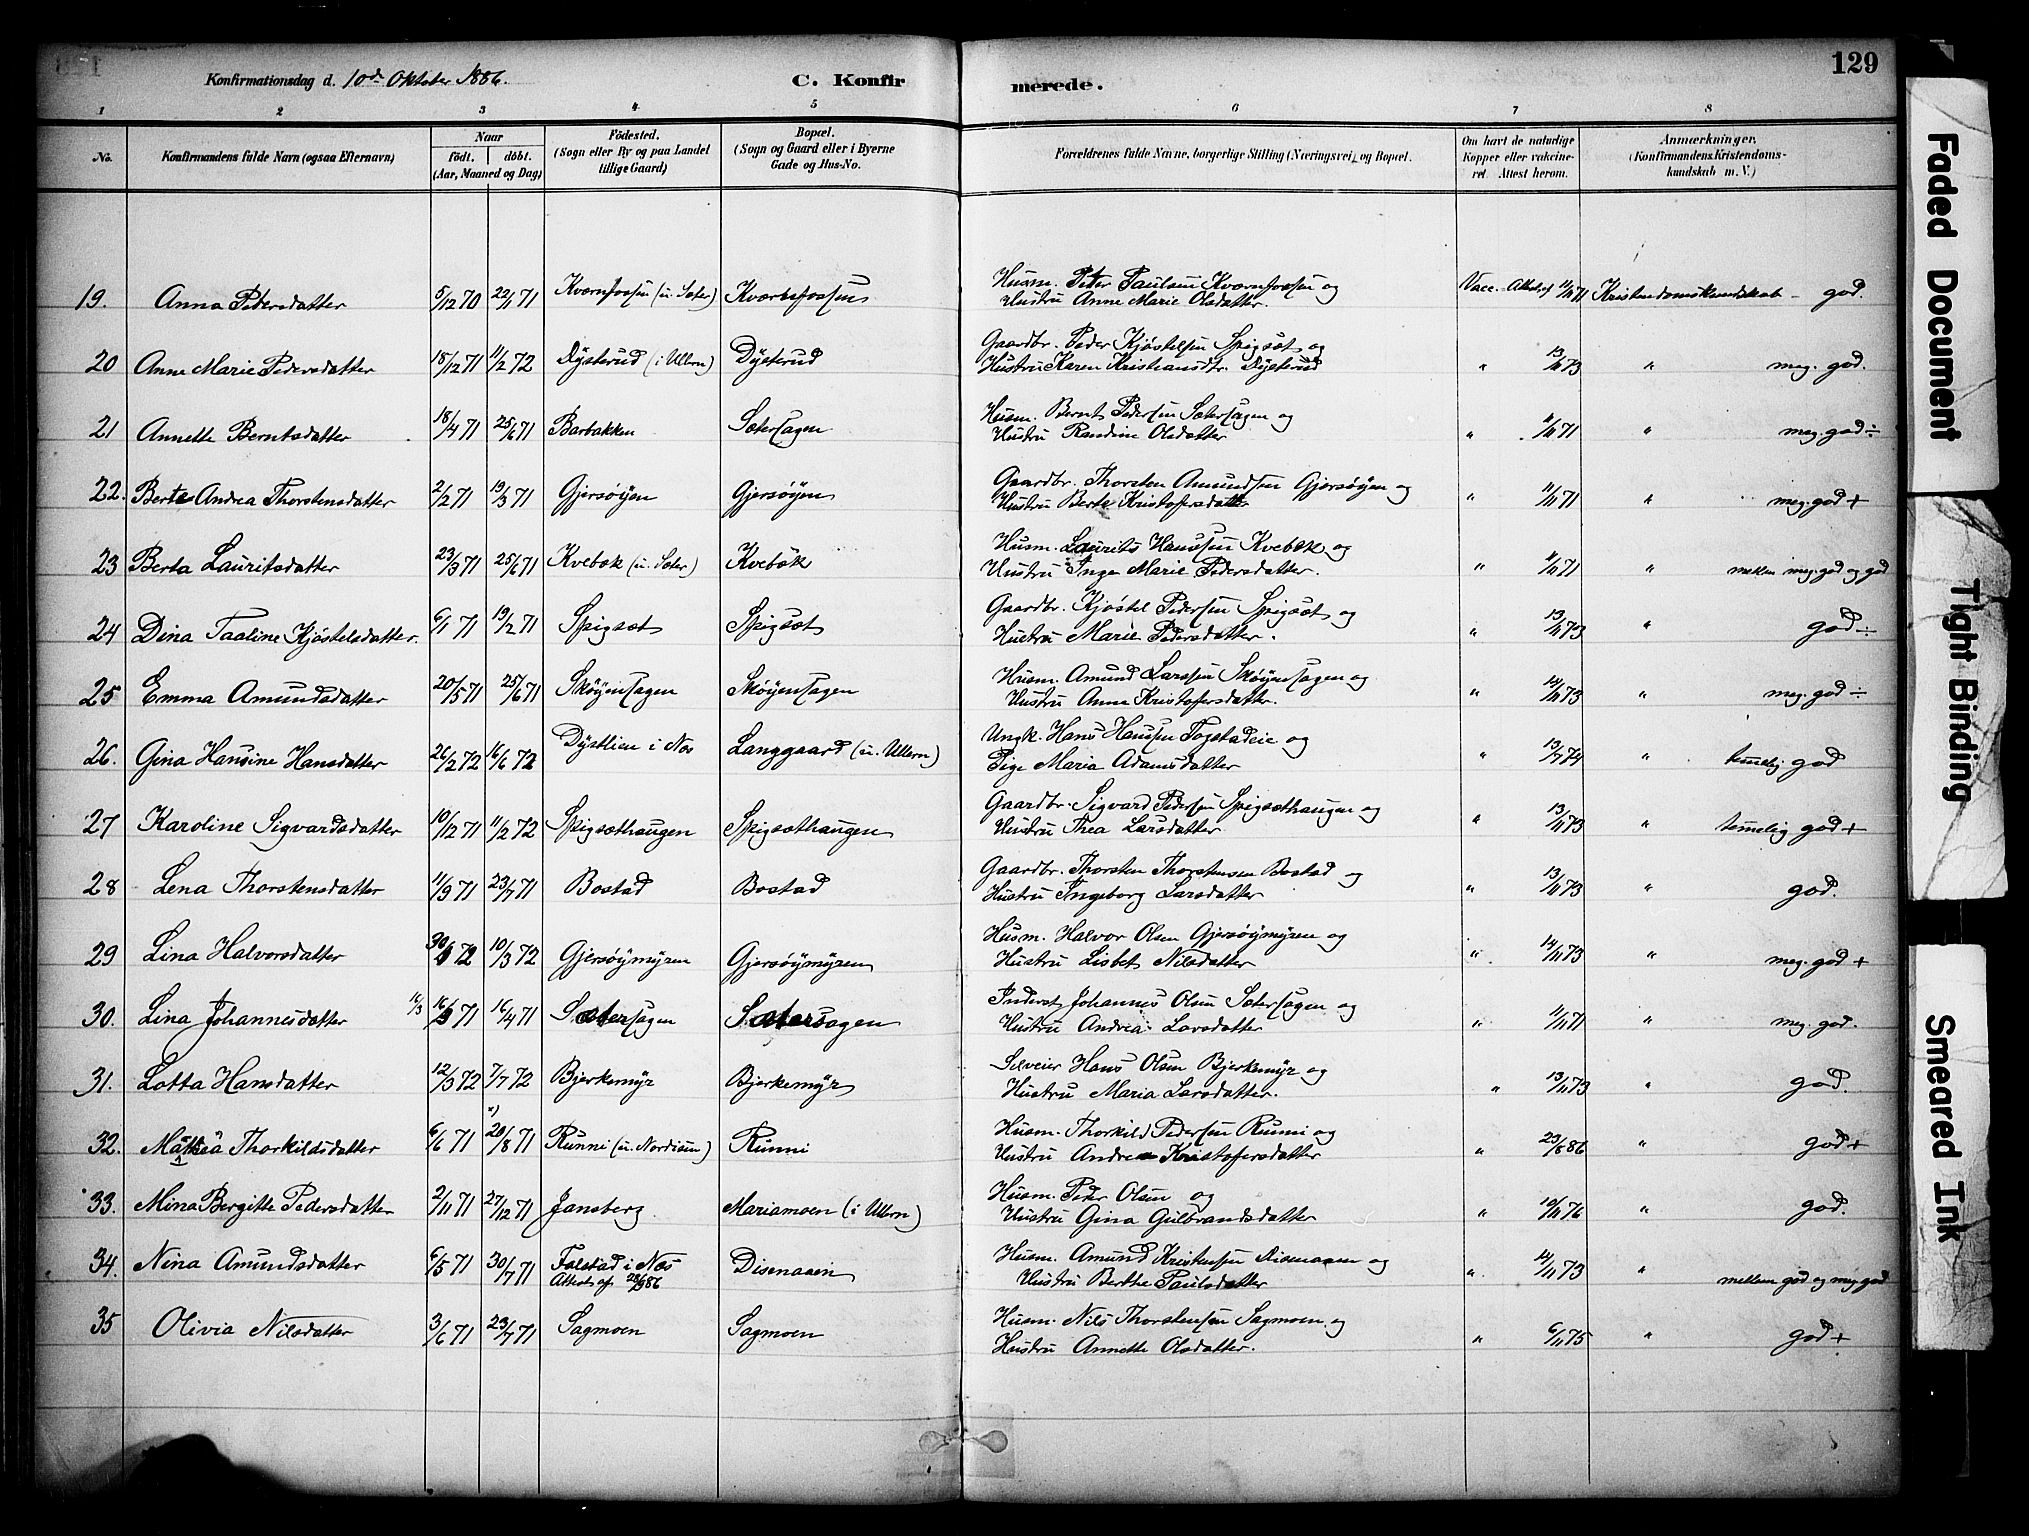 129
Konfirmationsdag d. 10de Oktober 1886.
C. Konfirmerede.
1 2 3 4 5 6 7 8
No.
Konfirmandens fulde Navn (ogsaa Efternavn)
Naar
födt. döbt.
(Aar, Maaned og Dag)
Födested.
(Sogn eller By og paa Landet
tillige Gaard)
Bopæl.
(Sogn og Gaard eller i Byerne
Gade og Hus-No.
Forældrenes fulde Navne, borgerlige Stilling (Næringsvei) og Bopæl.
Om havt de naturlige
Kopper eller vakcine-
ret. Attest herom.
Anmærkninger.
(Konfirmandens Kristendoms-
kundskab m. V.)
19. Anna Pedersdatter 5/12 70 22/1 71 Kværnfossen (u. Sæter) Kværnfossen Husm. Peter Paulsen Kværnfossen og Vacc. Attest af 11/11 71 Kristendomskundskab - god.
Hustru Anne Marie Olsdatter.
20 Anne Marie Pedersdatter 15/12 71 11/2 72 Dÿsterud (i Ullern) Dÿsterud Gaardbr. Peder Kjøstelsen Spigsæt og " 13/11 73 " meg. god.
Hustru Karen Kristiansdtr. Dÿsterud
21 Annette Berntsdatter 18/4 71 25/6 71 Barbakken Sætersagen Husm. Bernt Pedersen Sætersagen og " 11/11 71 " meg. god ÷
Hustru Randine Olsdatter
22. Berte Andrea Thorstensdatter 2/2 71 19/3 71 Gjersøÿen Gjersøÿen Gaardbr. Thorsten Amundsen Gjersøÿen og " 11/11 71 " meg. god +
Hustru Berte Kristofersdatter
23 Berta Lauritsdatter 23/3 71 25/6 71 Kvebæk (u. Sæter.) Kvebæk Husm. Laurits Hanssen Kvebæk og " 11/11 71 " mellem meg. god og god
Hustru Inge Marie Pedersdatter.
24 Dina Taaline Kjøstelsdatter. 6/1 71 19/2 71 Spigsæt Spigsæt Gaardbr. Kjøstel Pedersen Spigsæt og " 13/11 73 " god ÷
Hustru Marie Pedersdatter.
25 Emma Amundsdatter 20/5 71 25/6 71 Skøÿensagen Skøÿensagen Husm. Amund Larssen Skøÿensagen og " 14/11 73 " meg. god ÷
Hustru Anne Kristofersdatter.
26. Gina Hansine Hansdatter 26/2 72 16/6 72 Dÿstlien i Næs Langgaard (u. Ullern) Ungk. Hans Hanssen Fogstadeie og " 13/7 74 " temelig god
Pige Maria Adamsdatter
27 Karoline Sigvardsdatter 10/12 71 11/2 72 Spigsæthaugen Spigsæthaugen Gaardbr. Sigvard Pedersen Spigsæthaugen og " 13/11 73 " temelig god +
Hustru Thea Larsdatter
28 Lena Thorstensdatter 11/3 71 23/7 71 Bostad Bostad Gaardbr. Thorsten Thorstensen Bostad og " 13/11 73 " god.
Hustru Ingeborg Larsdatter
29 Lina Halvorsdatter 72 10/3 72 Gjersøÿmÿren Gjersøÿmÿren Husm. Halvor Olsen Gjersøÿmÿren og " 14/11 73 " meg. god +
Hustru Lisbet Nilsdatter
30. Lina Johannesdatter 16/3 16/3 71 16/4 71 Sætersagen Sætersagen Inderst Johannes Olsen Sætersagen og " 11/11 71 " meg. god.
Hustru Andrea Larsdatter
31. Lotta Hansdatter 12/3 72 7/7 72 Bjerkemÿr Bjerkemÿr Selveier Hans Olsen Bjerkemÿr og " 13/11 73 " god.
Hustru Maria Larsdatter.
32. Mathea Thorkildsdatter 6/6 71 20/8 71 Runni (u. Nordisen) Runni Husm. Thorkild Pedersen Runni og " 23/8 86 " god +
Hustru Andrea Kristofersdatter
33. Mina Bergitte Pedersdatter 2/11 71 27/12 71 Jansberg Mariamoen (i Ullern) Husm. Peder Olsen og " 10/11 76 " god.
Hustru Gina Gulbrandsdatter
34. Nina Amundsdatter 6/5 71 30/7 71 Falstad i Næs Disenaaen Husm. Amund Kristensen Disenaaen og " 14/11 73 " mellem god og meg. god
Attest af 86 Hustru Berthe Paulsdatter
35 Olivia Nilsdatter 3/6 71 23/7 71 Sagmoen Sagmoen Husm. Nils Thorstensen Sagmoen og " 6/11 75 " god +
Hustru Annette Olsdatter.
Faded Document
Tight Binding
Smeared Ink